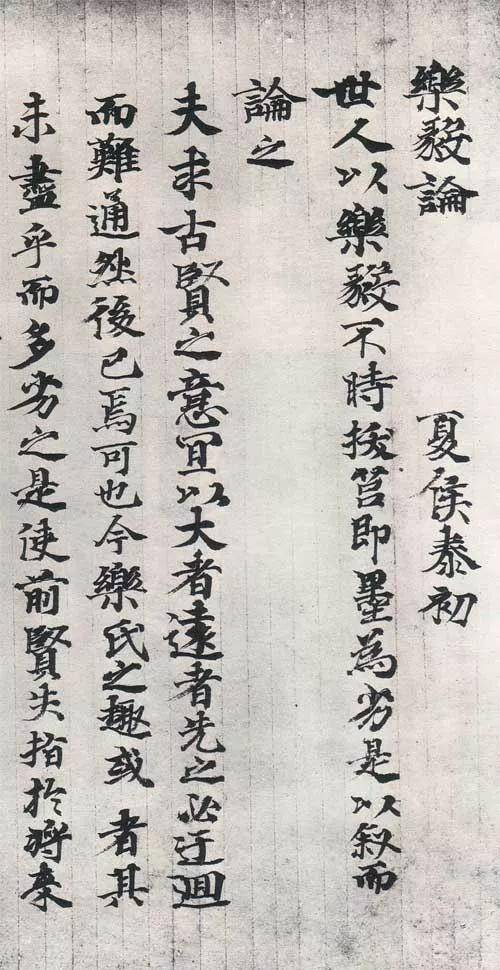 樂毅論 夏侯泰初
世人以樂毅不時拔莒即墨為劣是以叙而
論之
夫求古賢之意宜以大者遠者先之必迂迴
而難通然後已焉可也今樂氏之趣或者其
未盡乎而多劣之是使前賢失指於將來